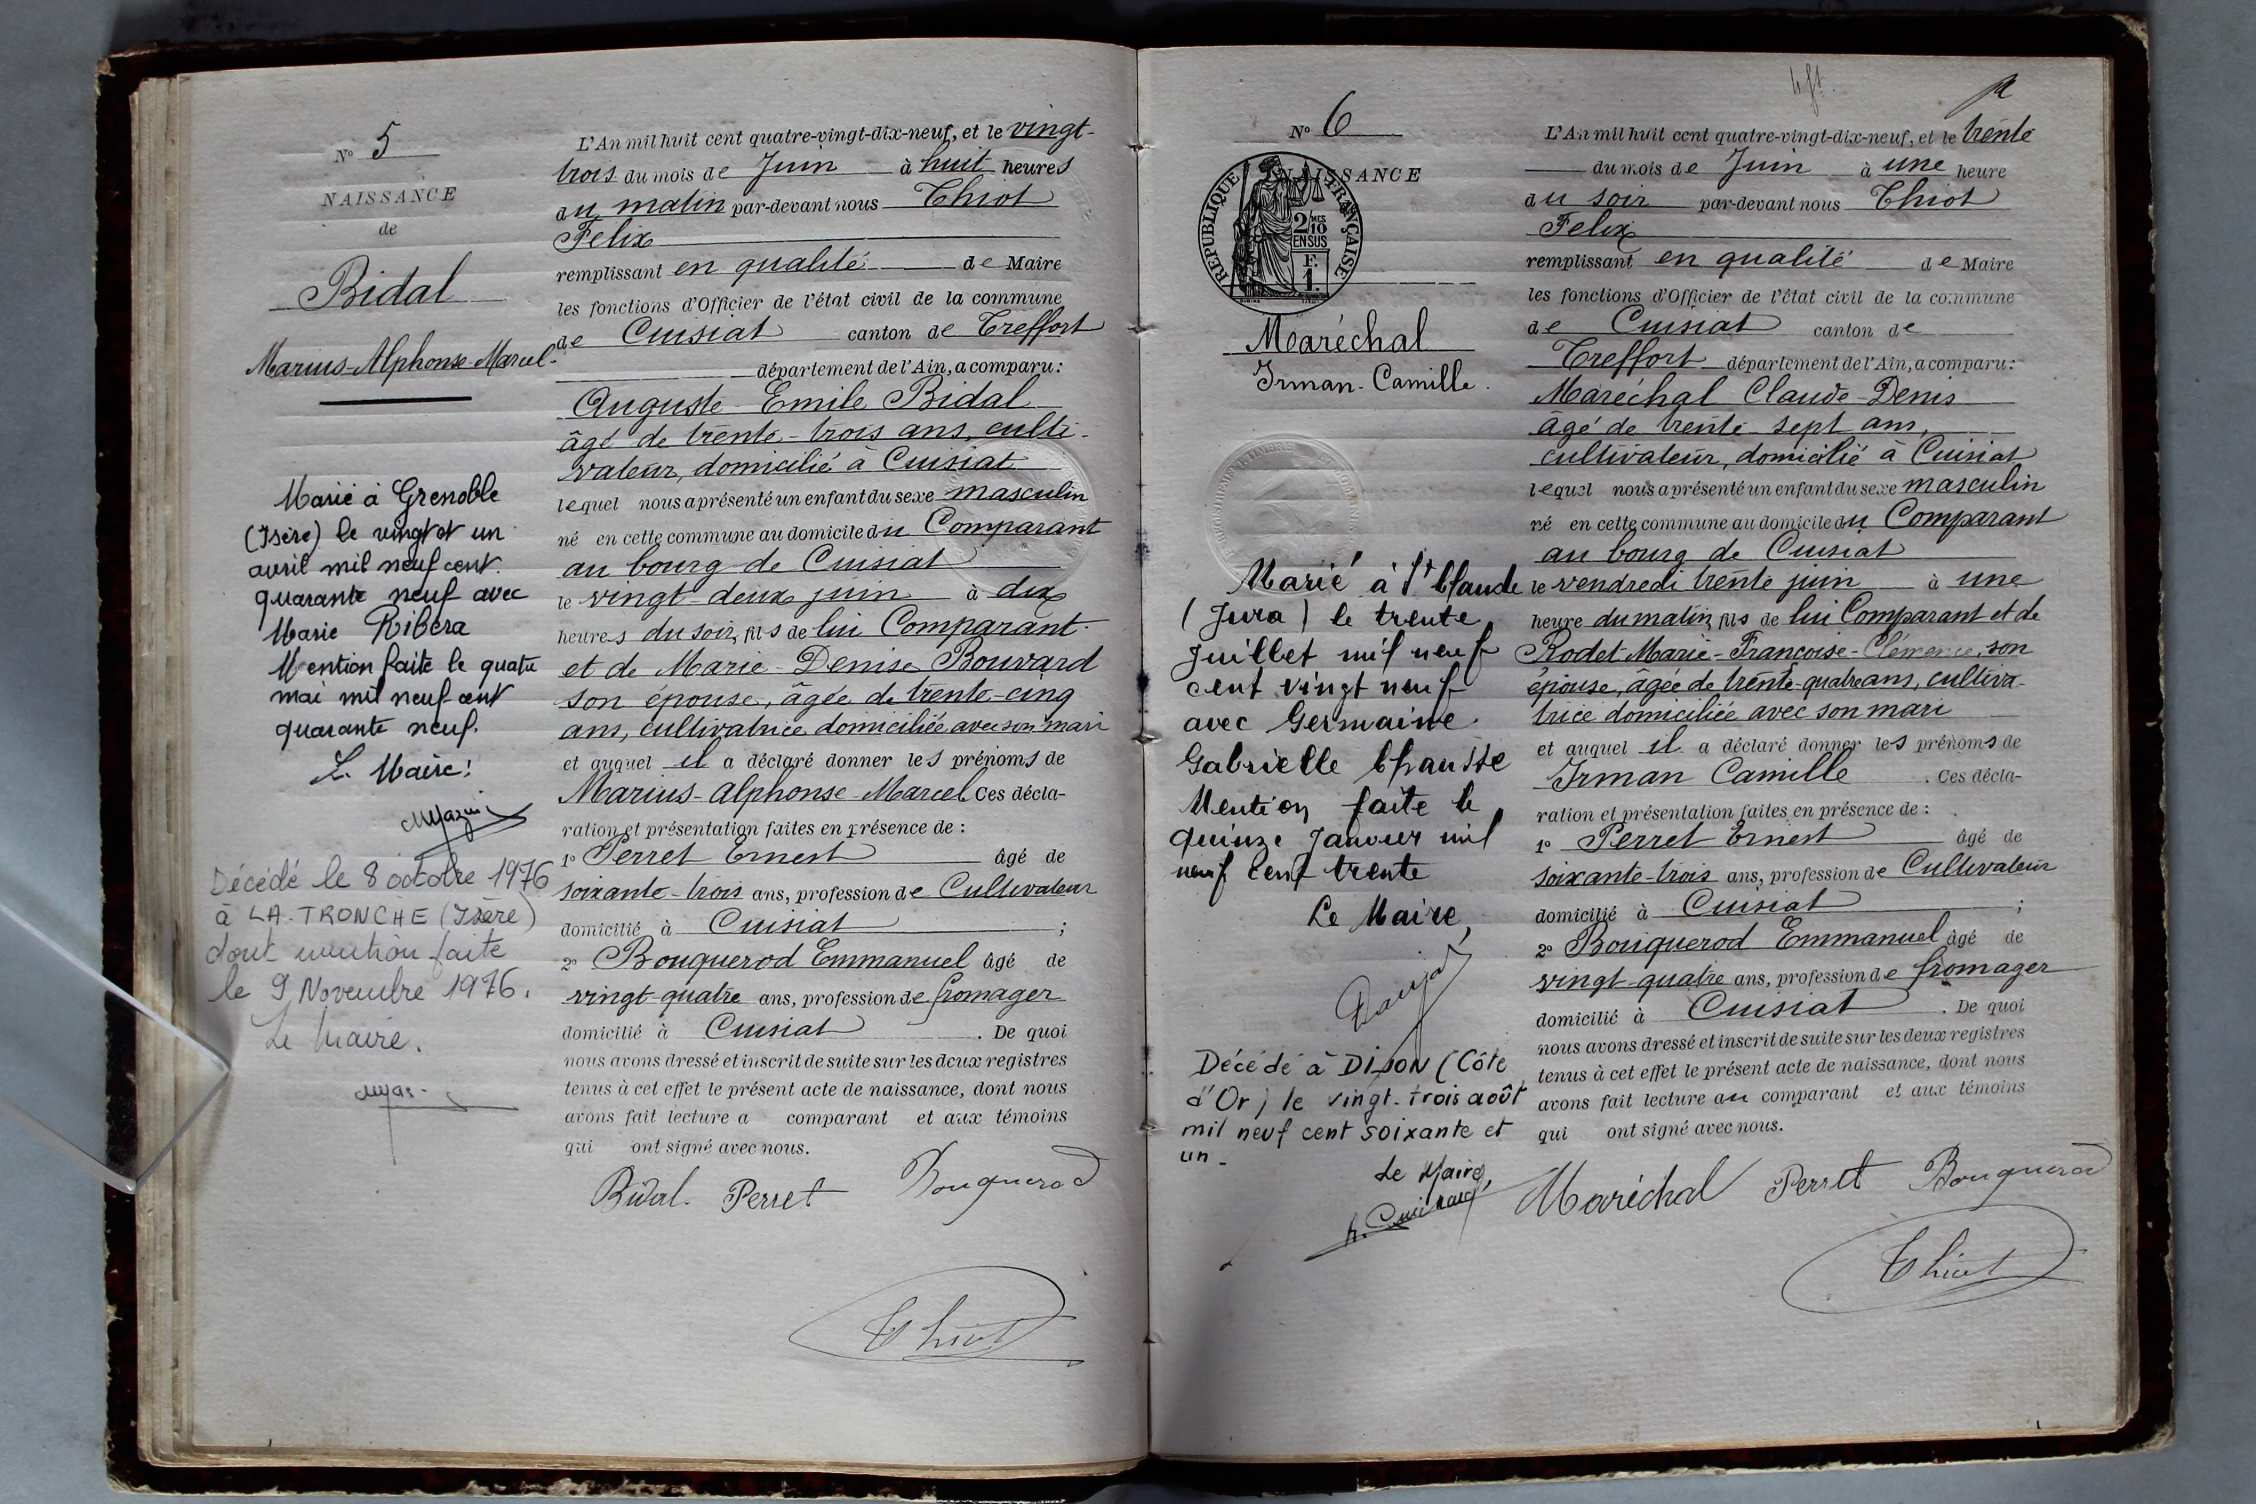 N° 5
NAISSANCE
de
Bidal
Marius-Alphonse-Marcel
Marié à Grenoble
(Isère) le vingt et un
avril mil neuf cent
quarante neuf avec
Marie Ribera
Mention faite le quatre
mai mil neuf cent
quarante neuf.
Le Maire:
Décédé le 8 octobre 1976
à LA-TRONCHE (Isère)
dont mention faite
le 9 Novembre 1976.
Le Maire.
L'An mil huit cent quatre-vingt-dix-neuf, et le vingt-
trois du mois de Juin à huit heures
du matin par-devant nous Thiot
Félix
remplissant en qualité de Maire
les fonctions d'Officier de l'état civil de la commune
de Cuisiat canton de Treffort
département de l'Ain, a comparu:
Auguste-Emile Bidal
âgé de trente-trois ans, culti-
vateur, domicilié à Cuisiat
lequel nous a présenté un enfant du sexe masculin
né en cette commune au domicile du Comparant
au bourg de Cuisiat
le vingt-deux juin à dix
heures du soir, fils de lui Comparant
et de Marie-Denise Bouvard
son épouse, âgée de trente-cinq
ans, cultivatrice domiciliée avec son mari
et auquel il a déclaré donner les prénoms de
Marius-Alphonse Marcel Ces décla-
ration et présentation faites en présence de :
1° Perret Ernest âgé de
soixante-trois ans, profession de Cultivateur
domicilié à Cuisiat ;
2° Bouquerod Emmanuel âgé de
vingt-quatre ans, profession de fromager
domicilié à Cuisiat . De quoi
nous avons dressé et inscrit de suite sur les deux registres
tenus à cet effet le présent acte de naissance, dont nous
avons fait lecture a comparant et aux témoins
qui ont signé avec nous.
Bidal. Perret Bouquerod
Thiot
N° 6
NAISSANCE
RÉPUBLIQUE FRANÇAISE
2/10 MES
EN SUS
F.
1.
Maréchal
Irman-Camille.
Marié à St Claude
(Jura) le trente
Juillet mil neuf
cent vingt neuf
avec Germaine
Gabrielle Chausse
Mention faite le
quinze Janvier mil
neuf cent trente
Le Maire,
Décédé à DIJON (Côte
d'Or) le vingt-trois août
mil neuf cent soixante et
un-
Le Maire,
L'An mil huit cent quatre-vingt-dix-neuf, et le trente
du mois de Juin à une heure
du soir par-devant nous Thiot
Felix
remplissant en qualité de Maire
les fonctions d'Officier de l'état civil de la commune
de Cuisiat canton de
Treffort département de l'Ain, a comparu:
Maréchal Claude-Denis
âgé de trente-sept ans,
cultivateur, domicilié à Cuisiat
lequel nous a présenté un enfant du sexe masculin
né en cette commune au domicile du Comparant
au bourg de Cuisiat
le vendredi trente juin à une
heure du matin, fils de lui Comparant et de
Rodet Marie-Françoise-Clémence, son
épouse, âgée de trente-quatre ans, cultiva-
trice domiciliée avec son mari
et auquel il a déclaré donner les prénoms de
Irman Camille . Ces décla-
ration et présentation faites en présence de :
1° Perret Ernest âgé de
soixante-trois ans, profession de Cultivateur
domicilié à Cuisiat ;
2° Bouquerod Emmanuel âgé de
vingt-quatre ans, profession de fromager
domicilié à Cuisiat . De quoi
nous avons dressé et inscrit de suite sur les deux registres
tenus à cet effet le présent acte de naissance, dont nous
avons fait lecture au comparant et aux témoins
qui ont signé avec nous.
Maréchal Perret Bouquerod
Thiot